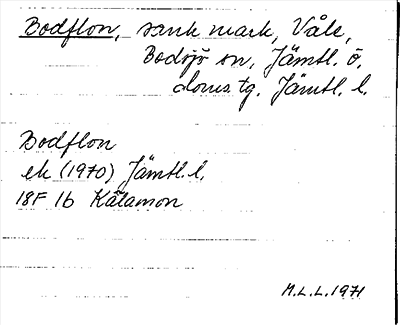 Bodflon, sank mark, Våle,
Bodsjö sn, Jämtl. ö.
doms tg. Jämtl. l.
Bodflon
ek (1970) Jämtl. l.
18F 1b Kälamon
M.L.L. 1971